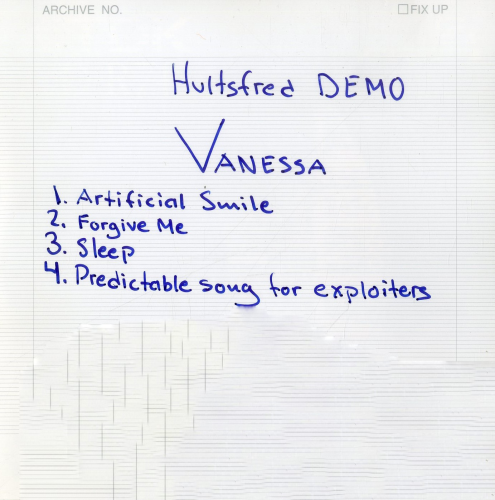 ARCHIVE NO. FIX UP
Hultsfred DEMO
VANESSA
1. Artificial Smile
2. Forgive Me
3. Sleep
4. Predictable song for exploiters